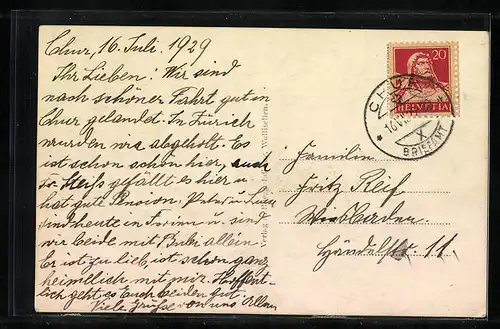 Chur, 16. Juli. 1929
Ihr Lieben! Wir sind
nach schöner Fahrt gut in
Chur gelandet. In Zürich
wurden wir abgeholt. Es
ist schon schön hier, auch
gefällt es hier u.
hat gute Pension. u.
sind heute in u. sind
wir beide mit Bubi allein.
Er ist zu lieb, ist schon ganz
heimtlich mit mir. Hoffent-
lich geht es Euch beiden gut
Viele Grüße von uns Allen
Verlag
20
HELVETIA
CHUR
BRIEFAMT
X
Familie
Fritz Reif
Wiesbaden
Händelstr. 11.